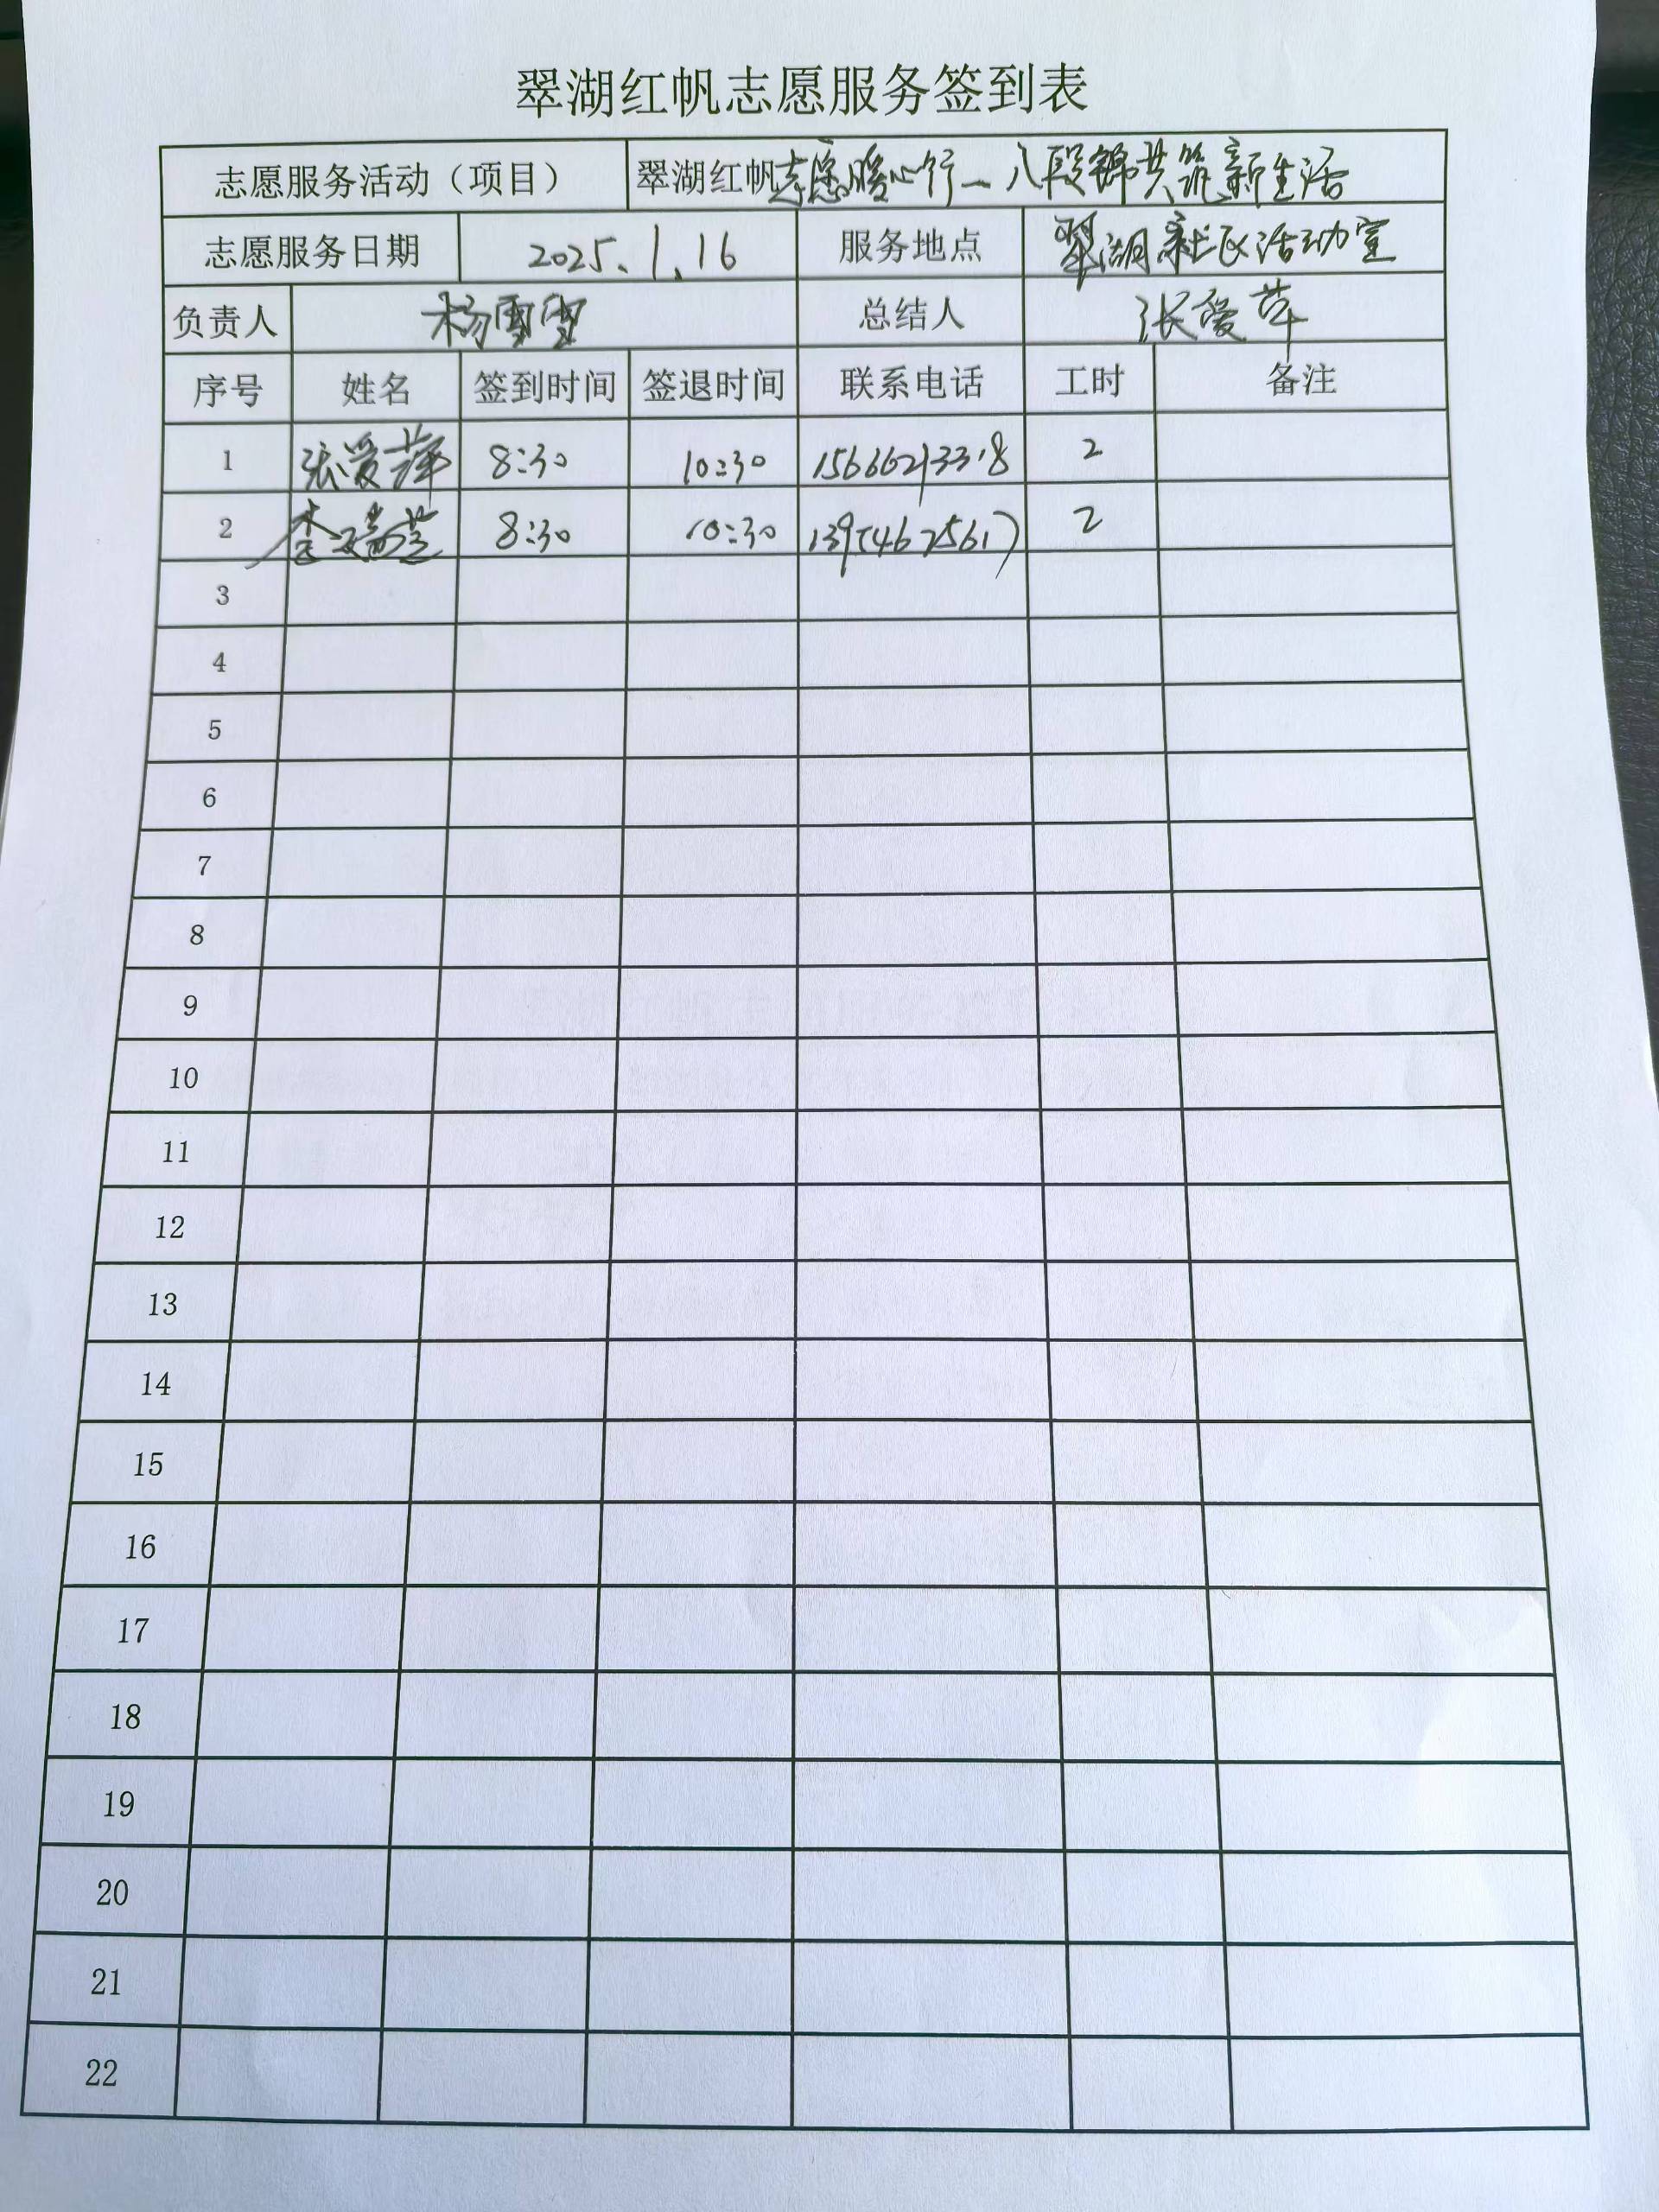 翠湖红帆志愿服务签到表
志愿服务活动（项目） 翠湖红帆志愿暖心行—八段锦共筑新生活
志愿服务日期 2025.1.16 服务地点 翠湖社区活动室
负责人 杨雪雪 总结人 张爱萍
序号 姓名 签到时间 签退时间 联系电话 工时 备注
1 张爱萍 8:30 10:30 2
2 8:30 10:30 2
3
4
5
6
7
8
9
10
11
12
13
14
15
16
17
18
19
20
21
22